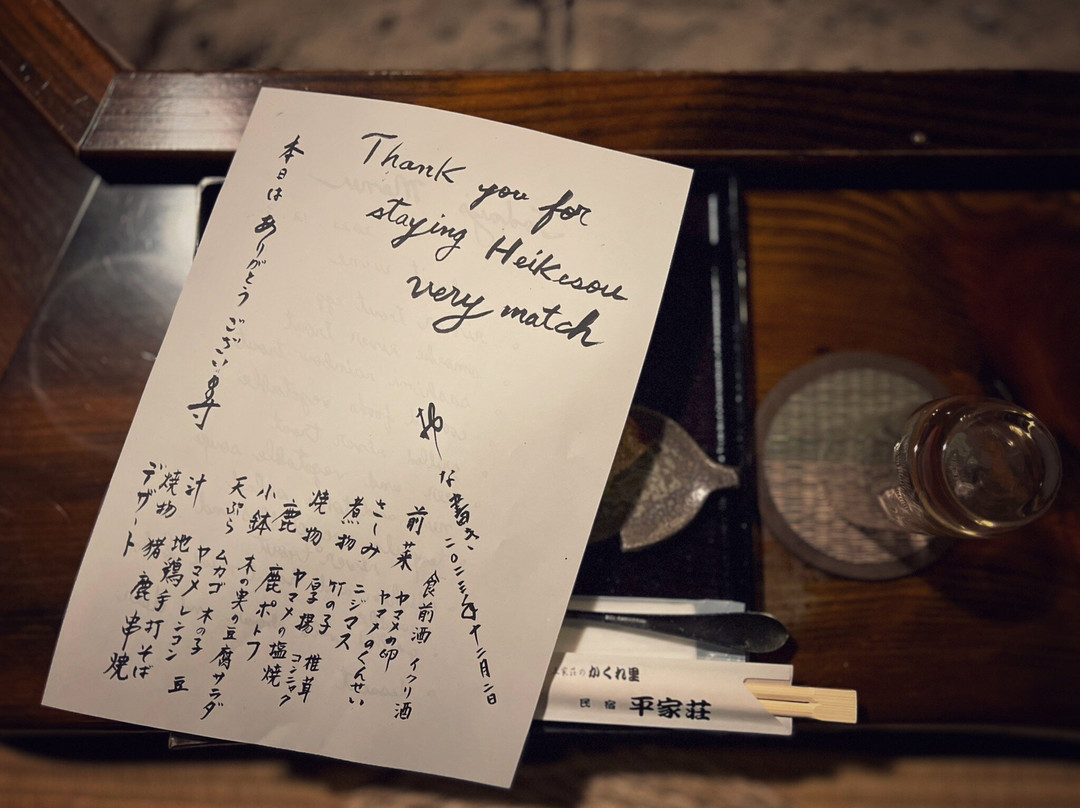 Thank you for
staying Heikesou
very match
本日は ありがとう ございま寿
おしな書き 二〇二三年十二月二日
前菜 食前酒 イクリ酒
ヤマメの卵
ヤマメのくんせい
さしみ ニジマス
煮物 竹の子
厚揚 椎茸 コンニャク
焼物 ヤマメの塩焼
鹿 鹿ポトフ
小鉢 木の実の豆腐サラダ
天ぷら ムカゴ 木の子
ヤマメ レンコン 豆
汁 地鶏手打そば
焼物 猪 鹿 串焼
デザート
家荘の かくれ里
民宿 平家荘